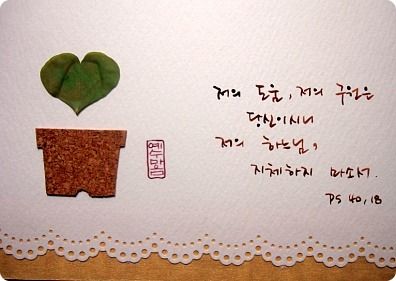 저의 도움, 저의 구원은
당신이시니
저의 하느님,
지체하지 마소서.
PS 40, 18
예수맘